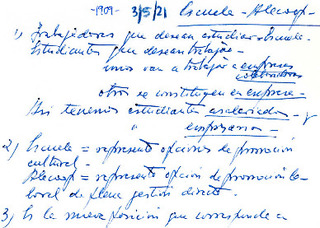 -1909- 3/5/21 Escuela - Alecoop -
1) Trabajadores que desean estudiar - Escuela -
Estudiantes que desean trabajar -
unos van a trabajar a empresas
otros se constituyen en empresa -
Asi tenemos estudiantes asalariados - y
" empresarios -
2) Escuela = represente opciones de promoción
cultural -
Alecoop = represente opción de promoción la-
boral de plena gestión directa -
3) Es la nueva posición que corresponde a